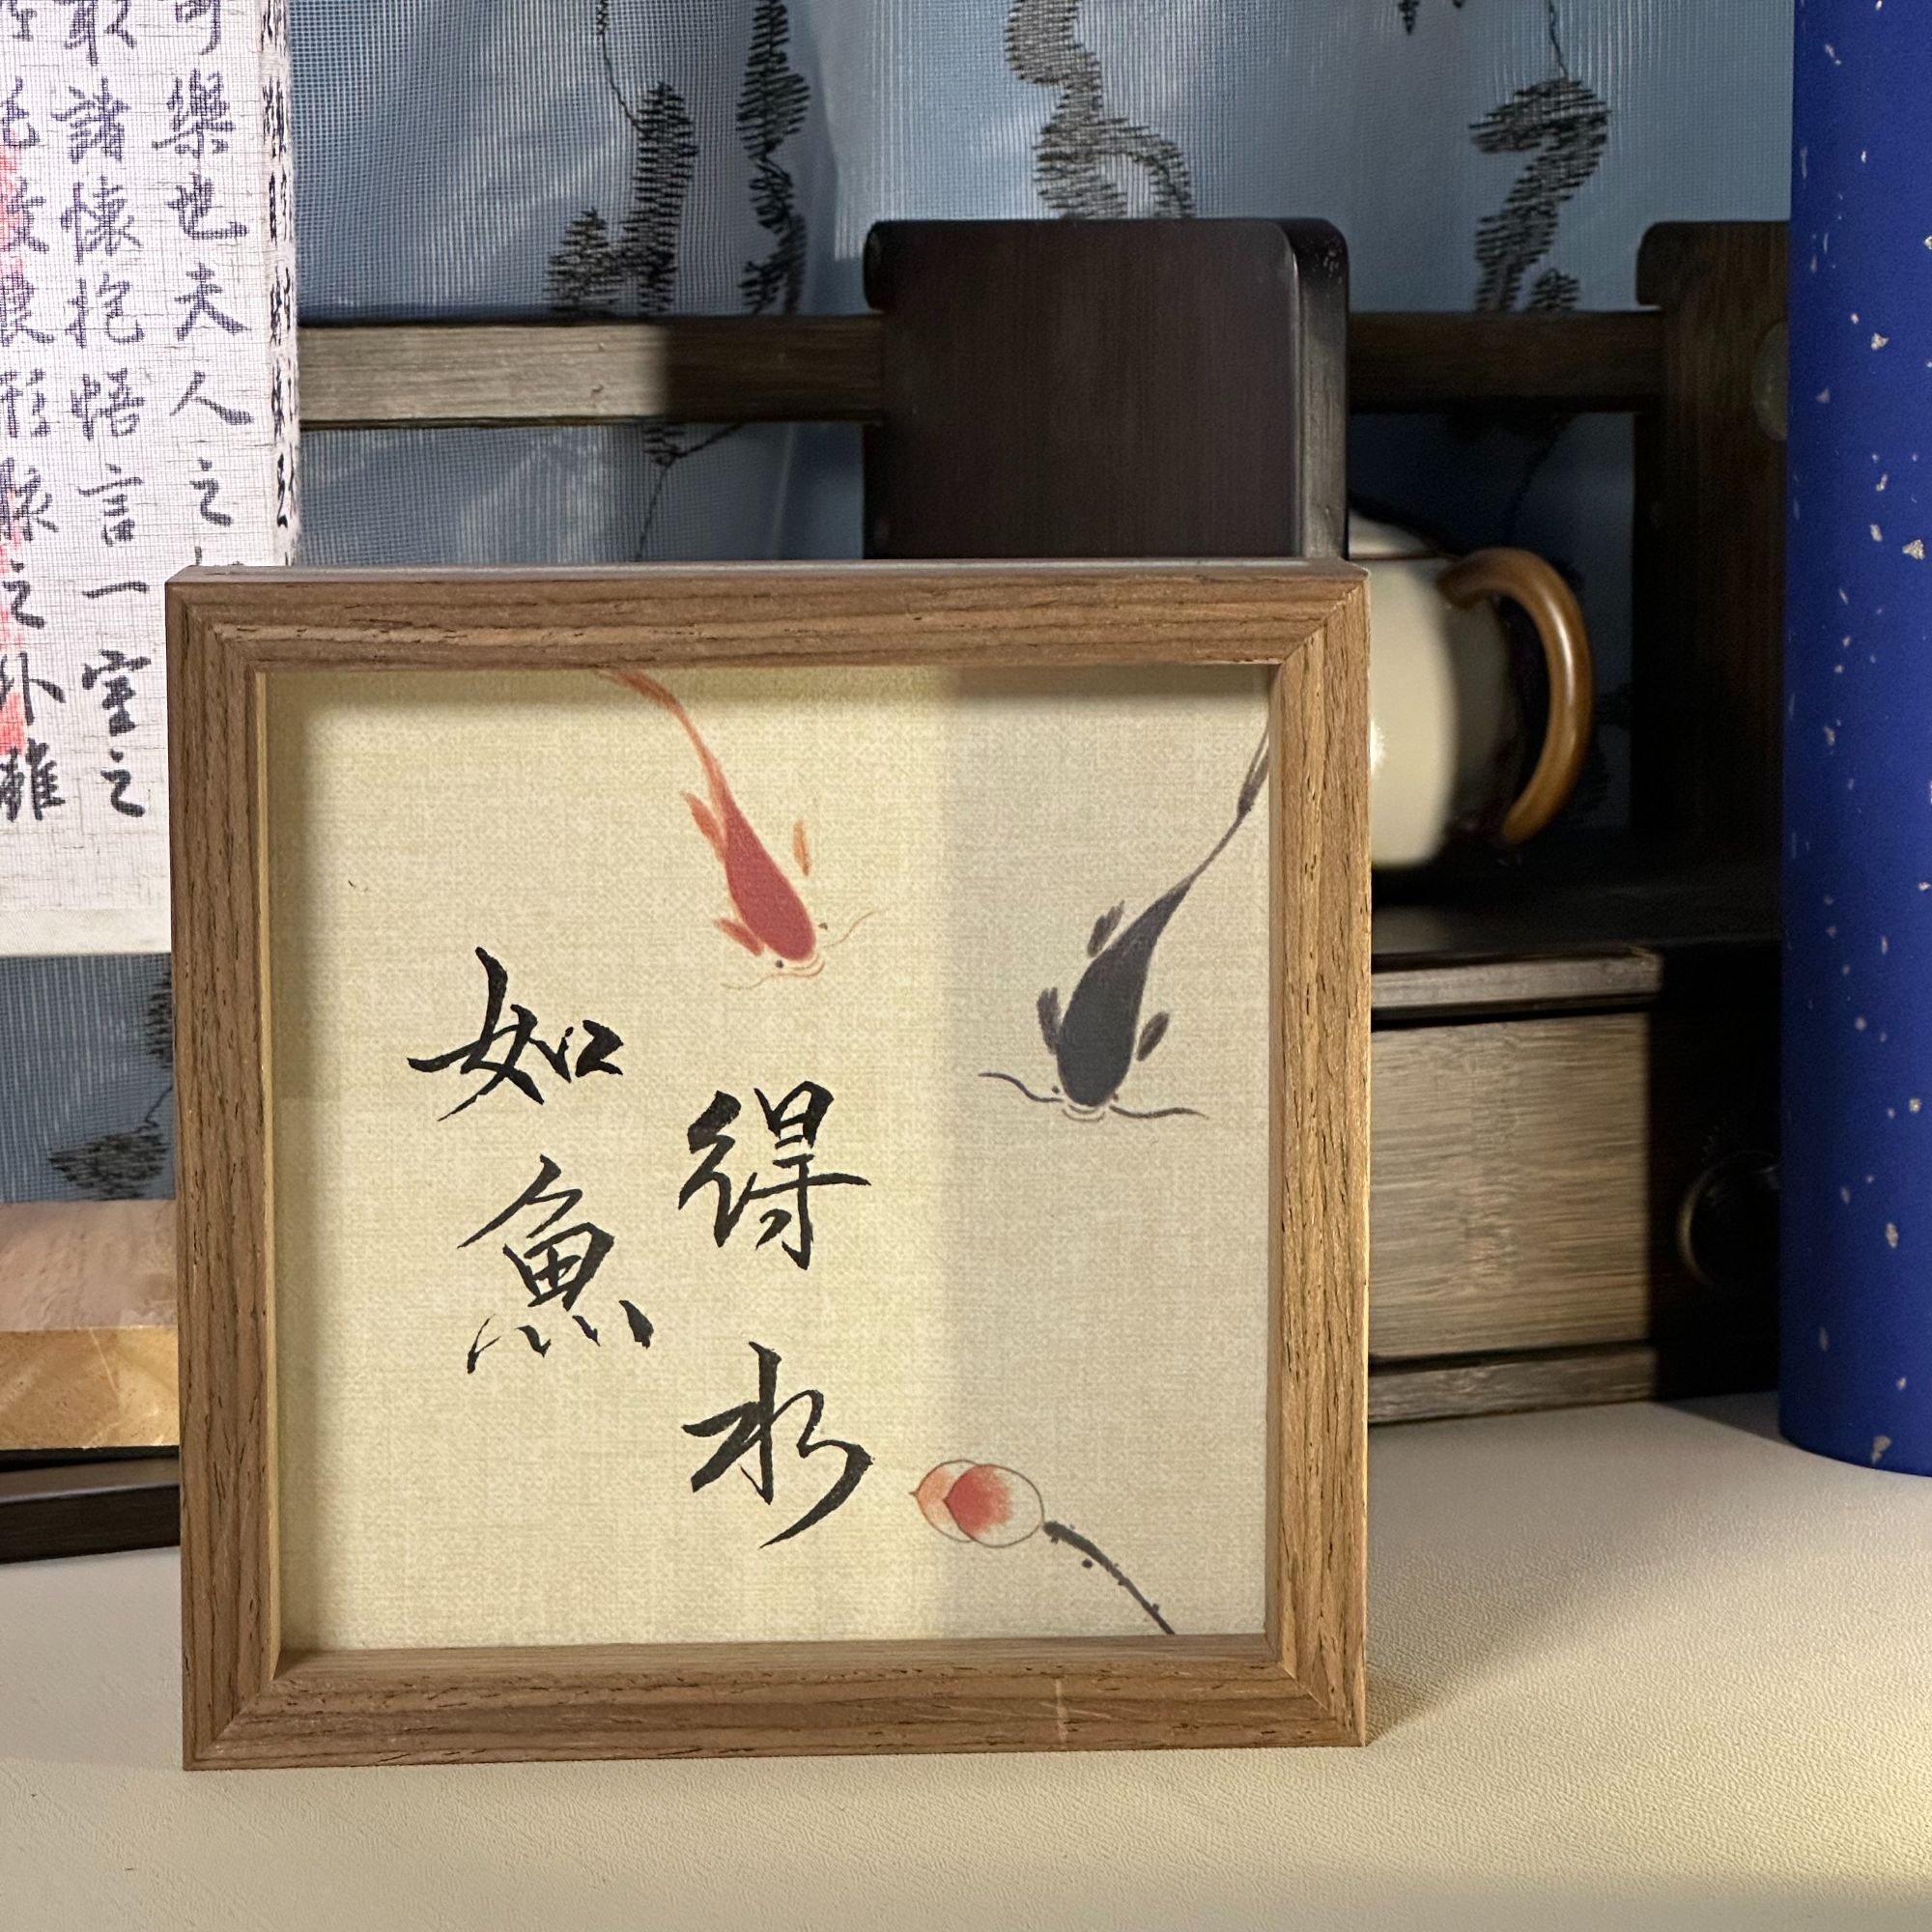 如魚
得水
可樂也夫人之
取諸懷抱悟言一室之
放浪形骸之外雖